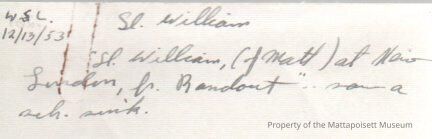 W.S.L.
12/13/53
Sl. William
"Sl. William, (of Matt) at New
London, fr. Rondout" .. saw a
sch. sink.
Property of the Mattapoisett Museum